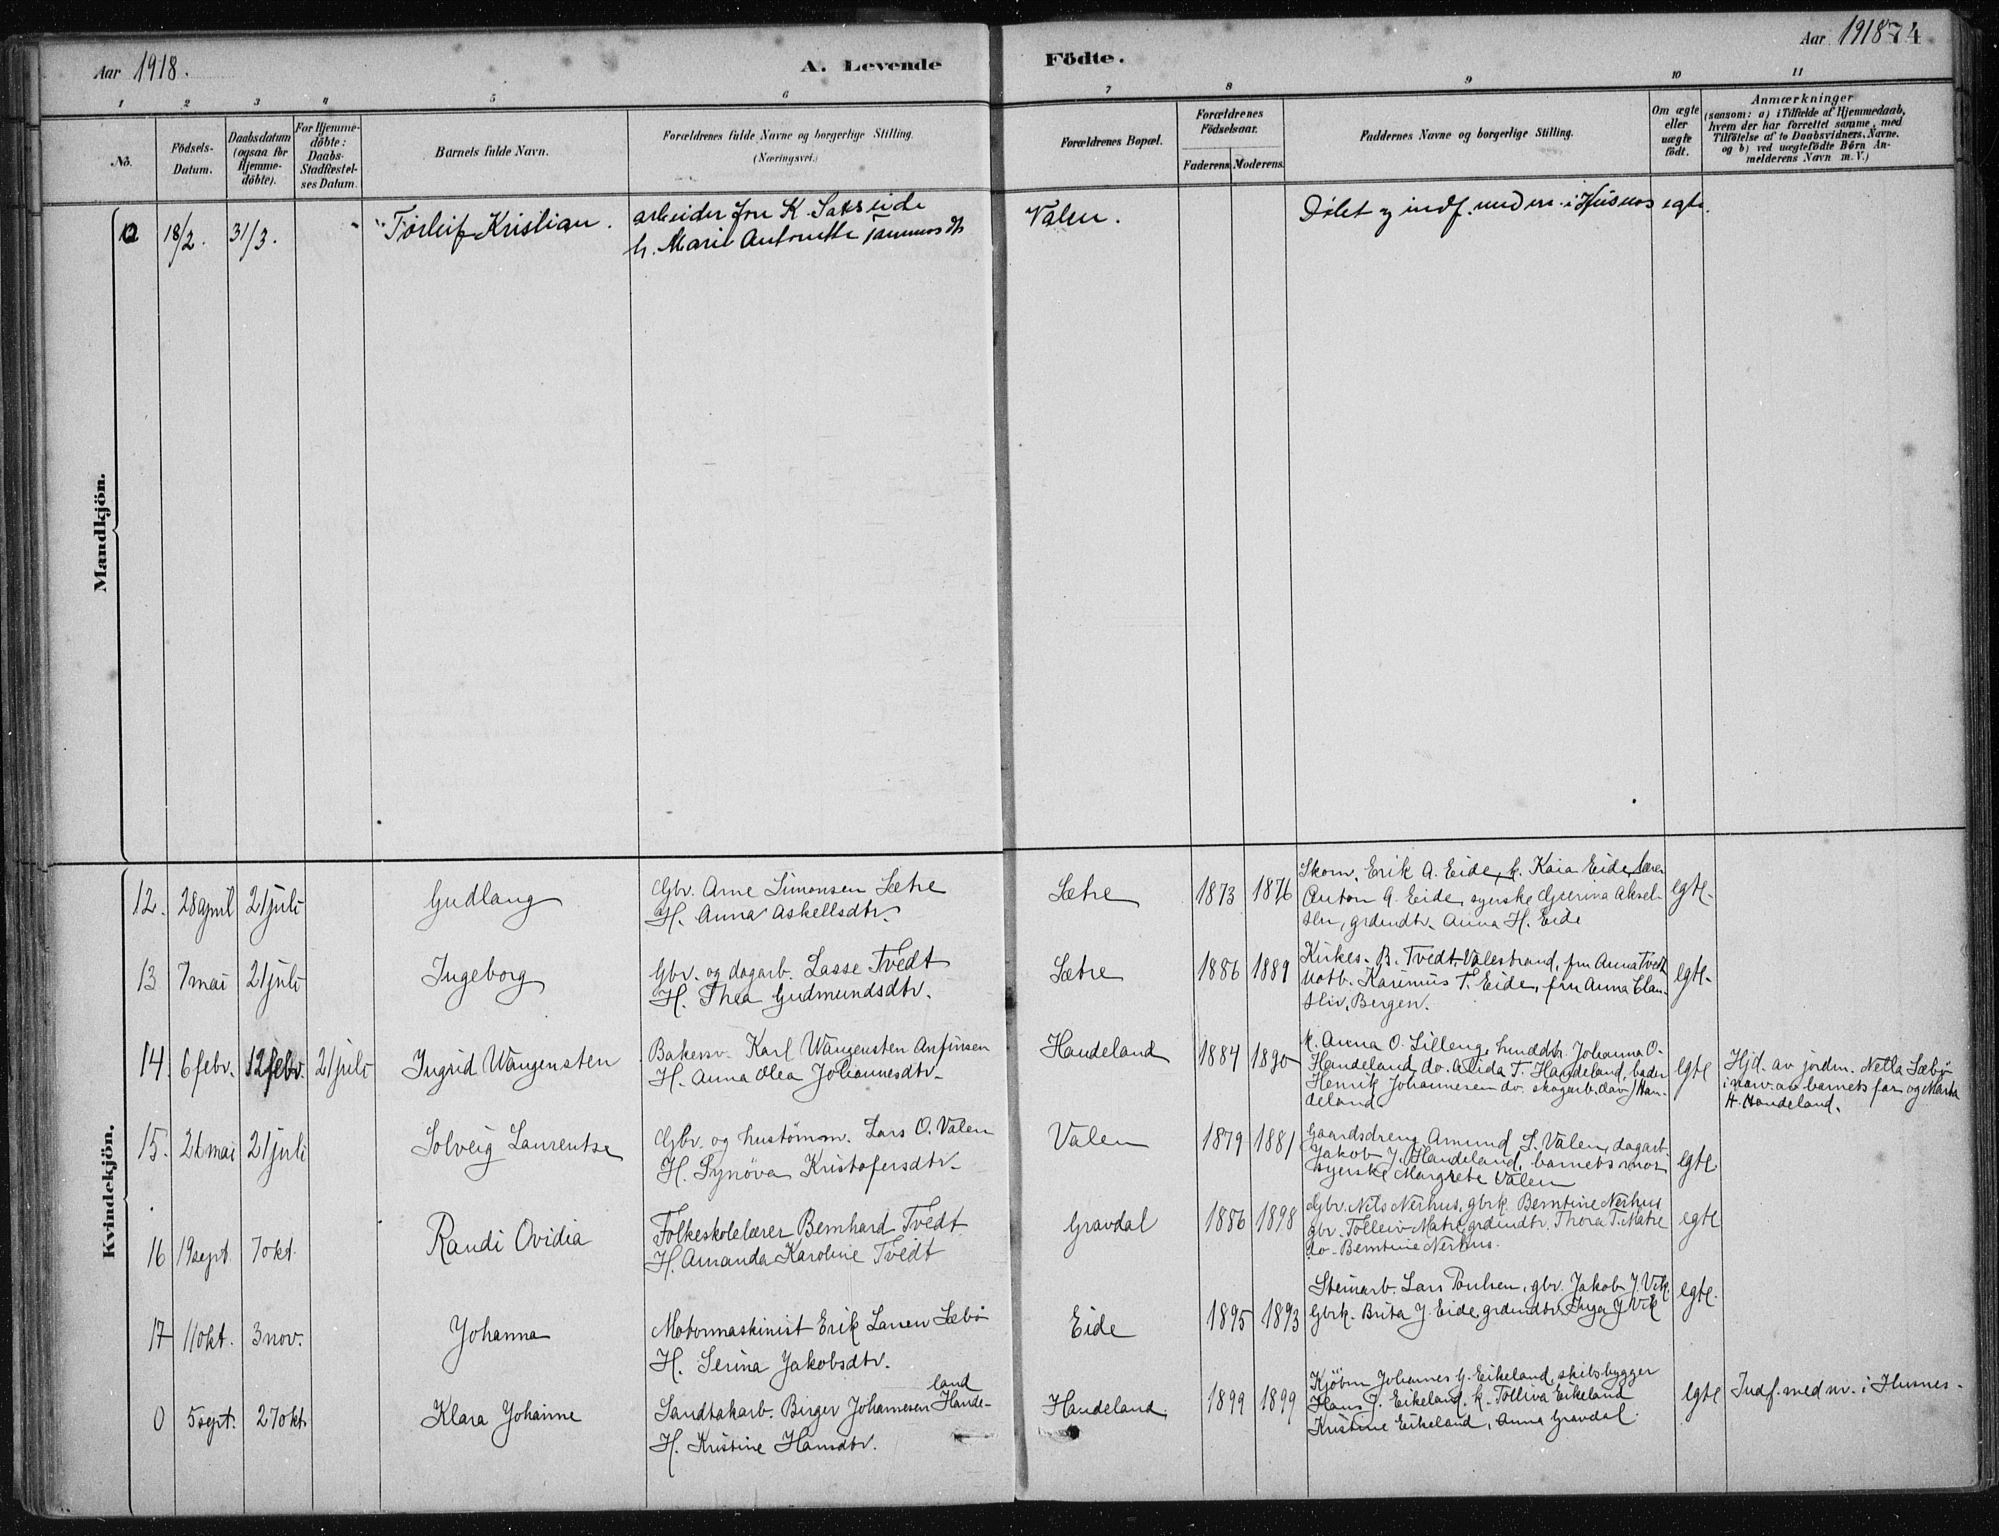 Aar 1918.
A. Levende
Födte.
Aar 1918
74
1 2 3 4 5 6 7 8 9 10 11
No.
Födsels-
Datum.
Daabsdatum
(ogsaa for
Hjemme-
döbte).
For Hjemme-
döbte:
Daabs-
Stadfæstel-
ses Datum.
Barnets fulde Navn.
Forældrenes fulde Navne og borgerlige Stilling.
(Næringsvei.)
Forældrenes Bopæl.
Forældrenes
Födselsaar.
Faderens. Moderens.
Faddernes Navne og borgerlige Stilling.
Om ægte
eller
uægte
födt.
Anmærkninger
(saasom: a) i Tilfælde af Hjemmedaab,
hvem der har forrettet samme, med
Tilföielse af to Daabsvidners Navne.
og b) ved uægtefödte Börn An-
melderens Navn m. V.)
Mandkjön.
18/2. 31/3. Torleif Kristian.
arbeider
h. Marie Antonette
Valen.
Døbt og indf. under i Husnes egte.
Kvindekjön.
12. 28 april 21 juli Gudlaug
Gbr. Arne Simonsen Sætre
H. Anna Askellsdtr.
Sætre 1873 1876
Skom. Erik A. Eide, k. Kaia Eide,
Anton A. Eide, syerske Aksel-
sen, grdmdtr. Anna H. Eide
egte.
13 7 mai 21 juli Ingeborg
Gbr. og dagarb. Lasse Tvedt
H. Thea Gudmundsdtr.
Sætre 1886 1889
Kirkes. B. Tvedt, Valestrand, fru Anna Tvedt
notb. Karinius T. Eide, fru Anna
Bergen.
egte.
14. 6 febr. 12 febr. 21 juli Ingrid Wangensten
Bakersv. Karl Wangensten Anfinsen
H. Anna Olea Johannesdtr.
Handeland 1884 1890
k. Anna O. Lilleng, husdtr. Johanna O.
Handeland, do. Alida T. Handeland, baker
Henrik Johannesen do. skogarb. Han-
deland.
egte
Hjd. av jordm. Netla Sæbø
i nærv. av barnets far og Marta
H. Handeland.
15. 21 mai 21 juli Solveig Laurentse
Gbr. og hustømm. Lars O. Valen
H. Synøva Kristofersdtr.
Valen 1879 1881
Gaardsdreng Amund L. Valen, dagarb.
Jakob J. Handeland, barnets mor
syerske Margrete Valen
egte.
16 19 sept. 7 okt. Randi Ovidia
Folkeskolelærer Bernhard Tvedt
H. Amanda Karoline Tvedt
Gravdal 1886 1898
Gbr. Nils Nerhus, gbrk. Berntine Nerhus
gbr. Tolleiv Matre, grdmdtr. Thora T. Matre
do. Berntine Nerhus.
egte
17 11 okt. 3 nov. Johanna
Motormaskinist Erik Larsen Sæbø
H. Serina Jakobsdtr.
Eide 1895 1893
Steinarb. Lars Poulsen, gbr. Jakob J. Vik
Gbrk. Brita J. Eide, grdmdtr. Inga J. Vik
egte.
0 5 sept. 27 okt. Klara Johanne
Sandtakarb. Birger Johannesen Hande-
land
H. Kristine Hansdtr.
Handeland. 1899 1899
Kjøbm Johannes G. Eikeland, skibsbygger
Hans J. Eikeland, k. Tolliva Eikeland
Kristine Eikeland, Anna Gravdal.
egte
Indf. med nr. i Husnes.